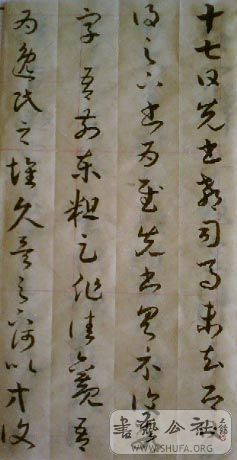 十七日先書郗司馬未去即
得足下書為慰先書以具示復
字吾前東粗足作佳觀吾
為逸民之懷久矣足下何以方復
書藝公社
WWW.SHUFA.ORG